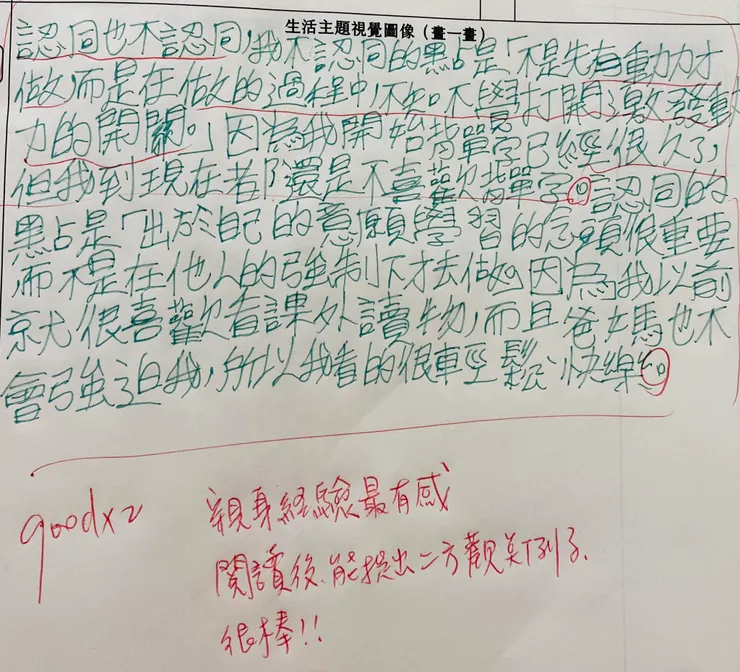 生活主題視覺圖像（畫一畫）
認同也不認同，我不認同的點是「不是先有動力才
做，而是在做的過程中，不知不覺打開激發動
力的開關。」因為我開始背單字已經很久了，
但我到現在都還是不喜歡背單字。認同的
點是「出於自己的意願學習的念頭很重要
而不是在他人的強制下才去做」因為我以前
就很喜歡看課外讀物，而且爸媽也不
會強迫我，所以我看的很輕鬆、快樂。
goodx2
親身經驗最有感
閱讀後，能提出二方觀點例子，
很棒!!